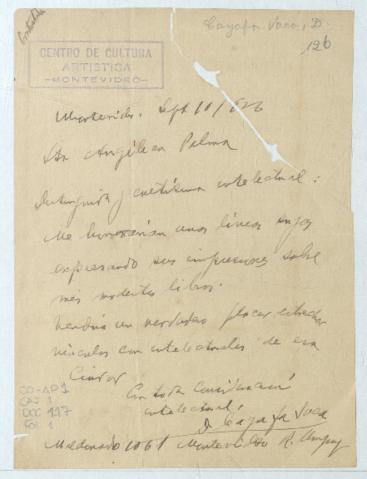 Cayafa Soca, D.
126
CENTRO DE CULTURA
ARTISTICA
-MONTEVIDEO-
Montevideo. Sept 10/926
Sta Angélica Palma
Distinguida y cultísima intelectual:
Me honrarían unas líneas suyas
expresando sus impresiones sobre
mis modestos libros.
Tendría un verdadero placer estrechar
vínculos con intelectuales de esa
Ciudad
Con toda consideración
intelectual,
D. Cayafa Soca
Maldonado 1061 Montevideo R. Uruguay
CO-AP1
CAJ 1
DOC 127
Fol 1